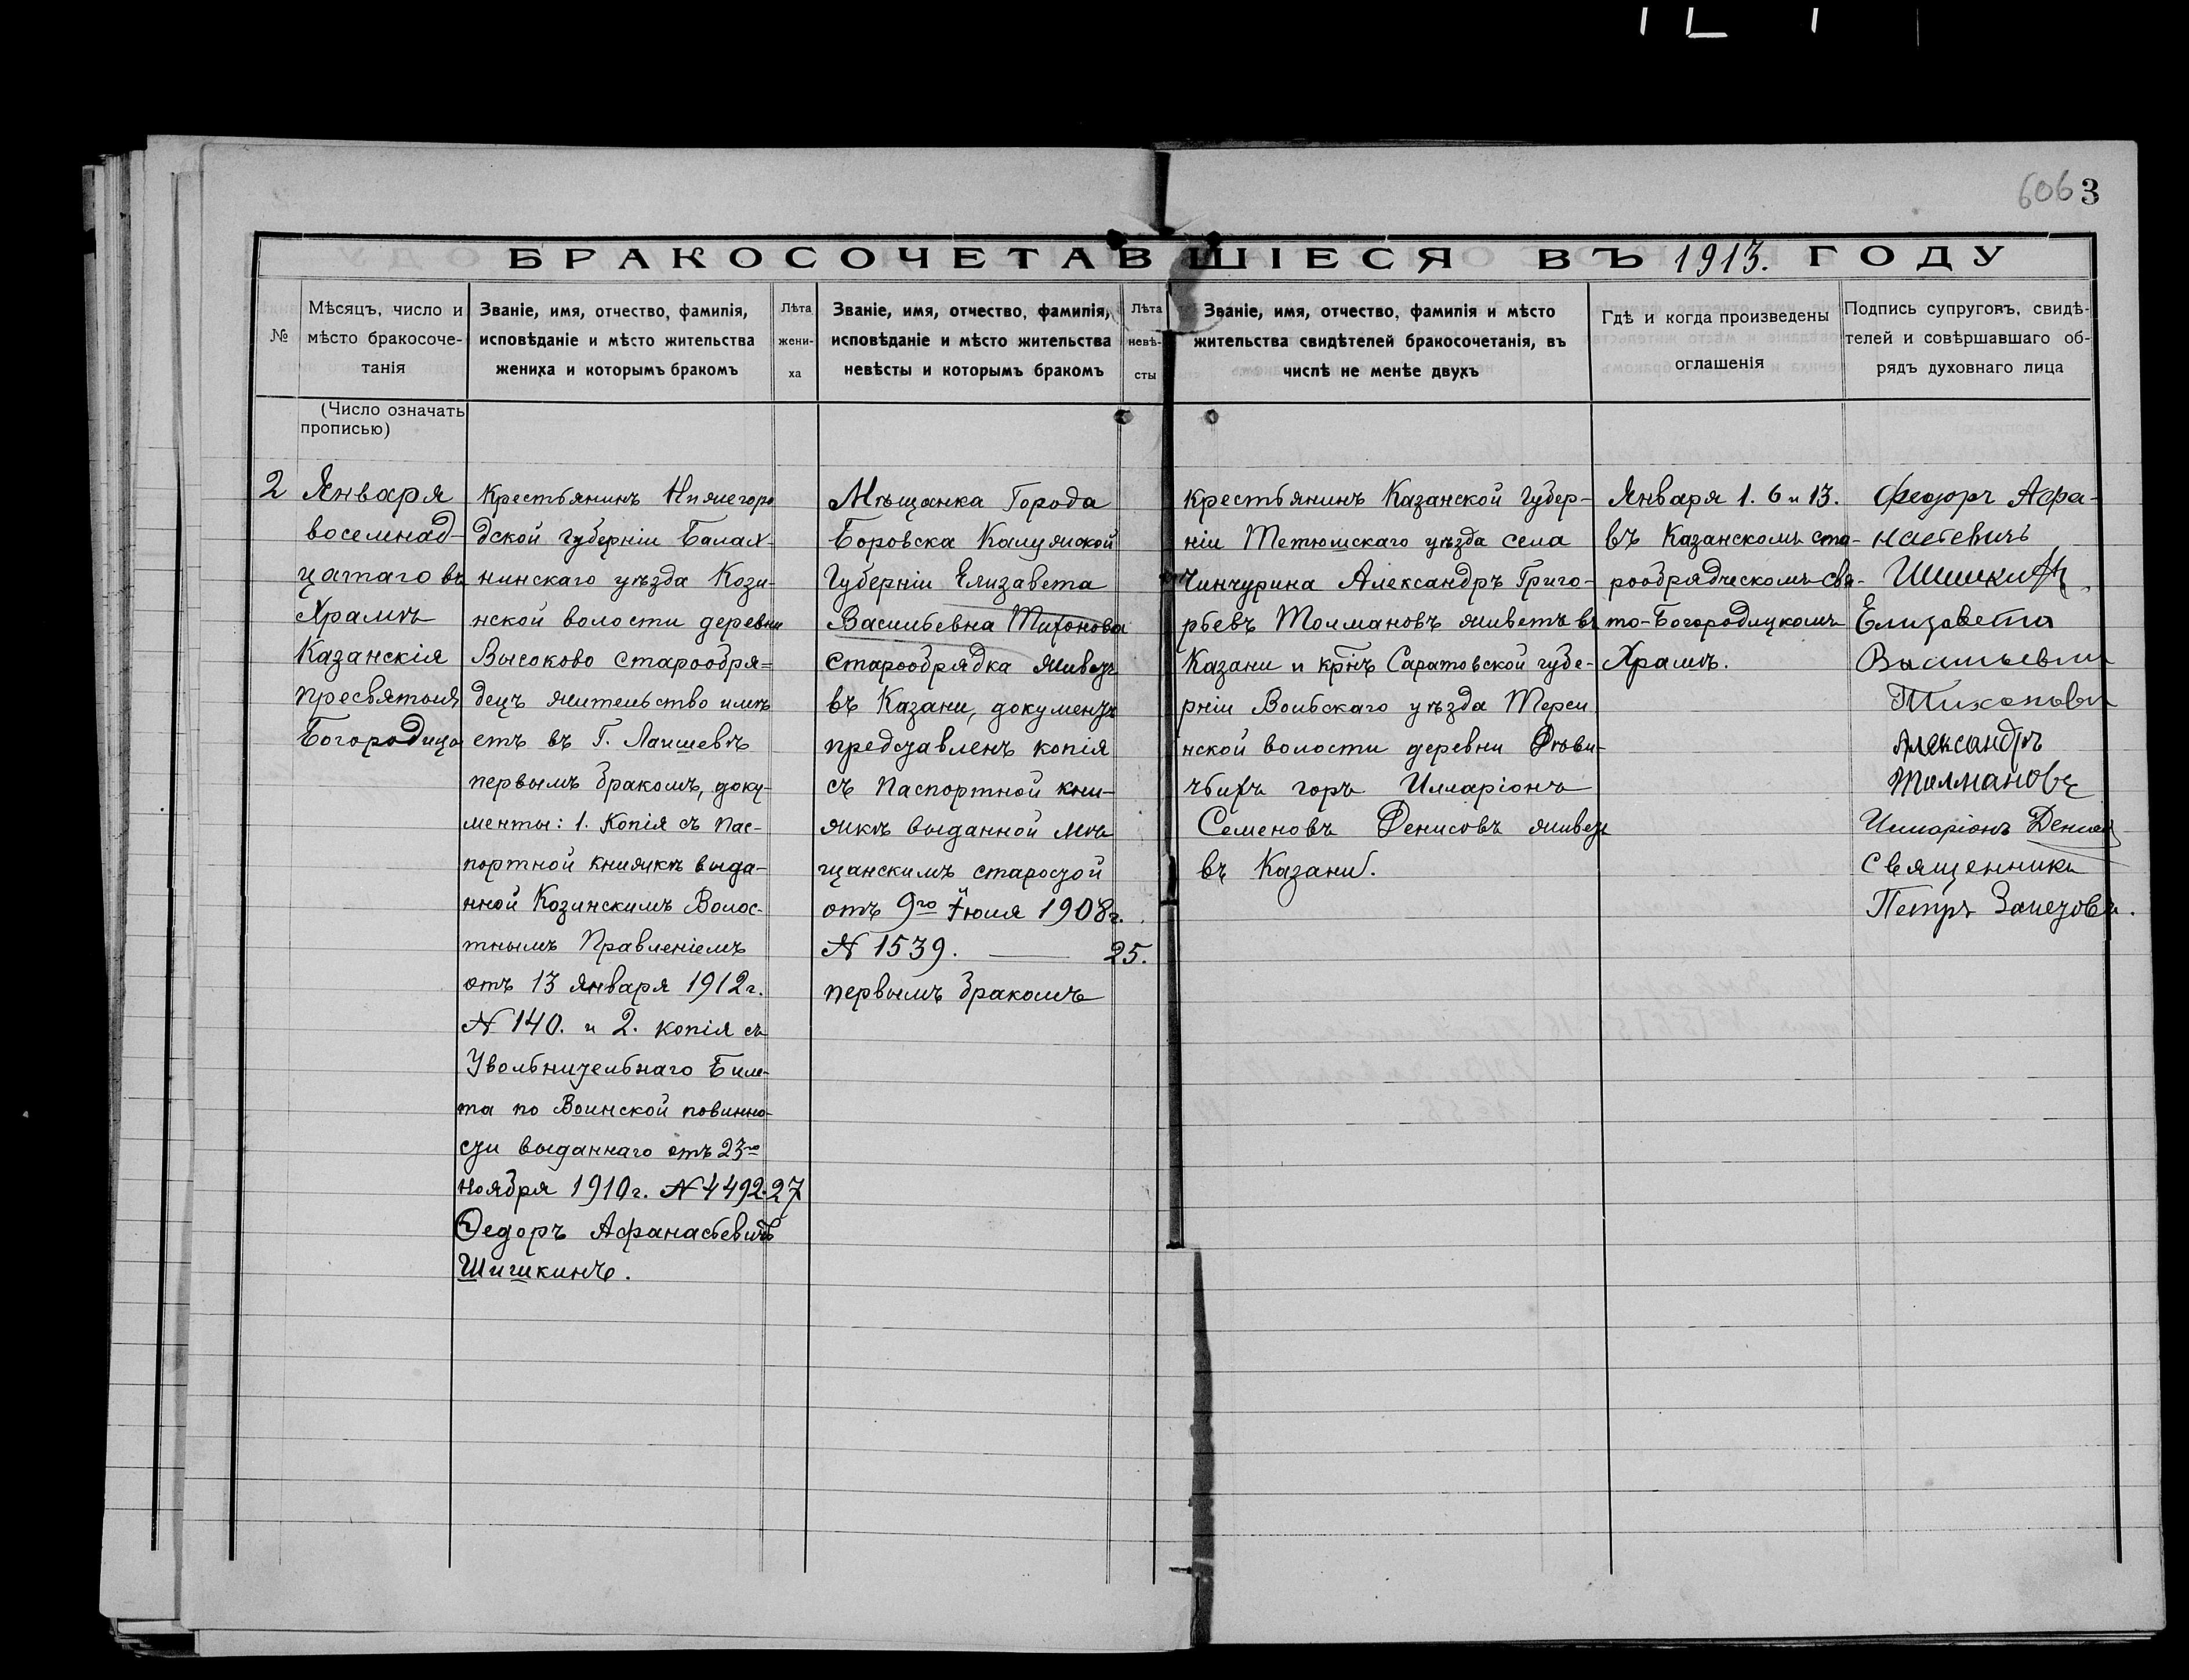 606 3
БРАКОСОЧЕТАВШІЕСЯ ВЪ 1913. ГОДУ
№
Мѣсяцъ, число и
мѣсто бракосоче-
танія
Званіе, имя, отчество, фамилія,
исповѣданіе и мѣсто жительства
жениха и которымъ бракомъ
Лѣта
жени-
ха
Званіе, имя, отчество, фамилія,
исповѣданіе и мѣсто жительства
невѣсты и которымъ бракомъ
Лѣта
невѣ-
сты
Званіе, имя, отчество, фамилія и мѣсто
жительства свидѣтелей бракосочетанія, въ
числѣ не менѣе двухъ
Гдѣ и когда произведены
оглашенія
Подпись супруговъ, свидѣ-
телей и совѣршавшаго об-
рядъ духовнаго лица
(Число означать
прописью)
2
Января
восемнад-
цатаго въ
Храмѣ
Казанскія
пресвятыя
Богородицы
Крестьянинъ Нижегоро
дской губерніи Балах-
нинскаго уѣзда Кози-
нской волости деревни
Высоково старообря=
децъ жительство имѣ
етъ въ Г. Лаишевѣ
первымъ бракомъ, доку-
менты: 1. Копія съ пас-
портной книжкѣ выда-
нной Козинскимъ Волос-
тнымъ Правленіемъ
отъ 13 января 1912г.
№ 140. и 2. копія съ
Увольнительнаго Биле-
та по Воинской повинно-
сти выданнаго отъ 23го
ноября 1910г. № 4492.
Ѳедоръ Афанасьевичъ
Шишкинъ.
27
Мѣщанка Города
Боровска Калужской
Губерніи Елизавета
Васильевна Тихонова
старообрядка живетъ
въ Казани, документъ
представленъ копія
съ паспортной кни-
жкѣ выданной мѣ
щанскимъ старостой
отъ 9го Іюля 1908г.
№ 1539.
первымъ бракомъ
25.
крестьянинъ Казанской Губер-
ніи Тетюшскаго уѣзда села
Чинчурина Александръ Григо-
рьевъ Толмановъ живетъ въ
Казани и крнъ Саратовской губе-
рніи Вольскаго уѣзда Терси
нской волости деревни Дѣви-
чьихъ горъ Илларіонъ
Семеновъ Денисовъ живетъ
въ Казани.
Января 1. 6 и 13.
въ Казанскомъ ста-
рообрядческомъ Свя-
то-Богородицкомъ
Храмѣ.
Федоръ Афа-
насьевичъ
Шишкинъ
Елизавета
Васильевна
Тихонова
Александръ
Толмановъ
Илларіонъ Денисовъ
Священникъ
Петръ Залетовъ.